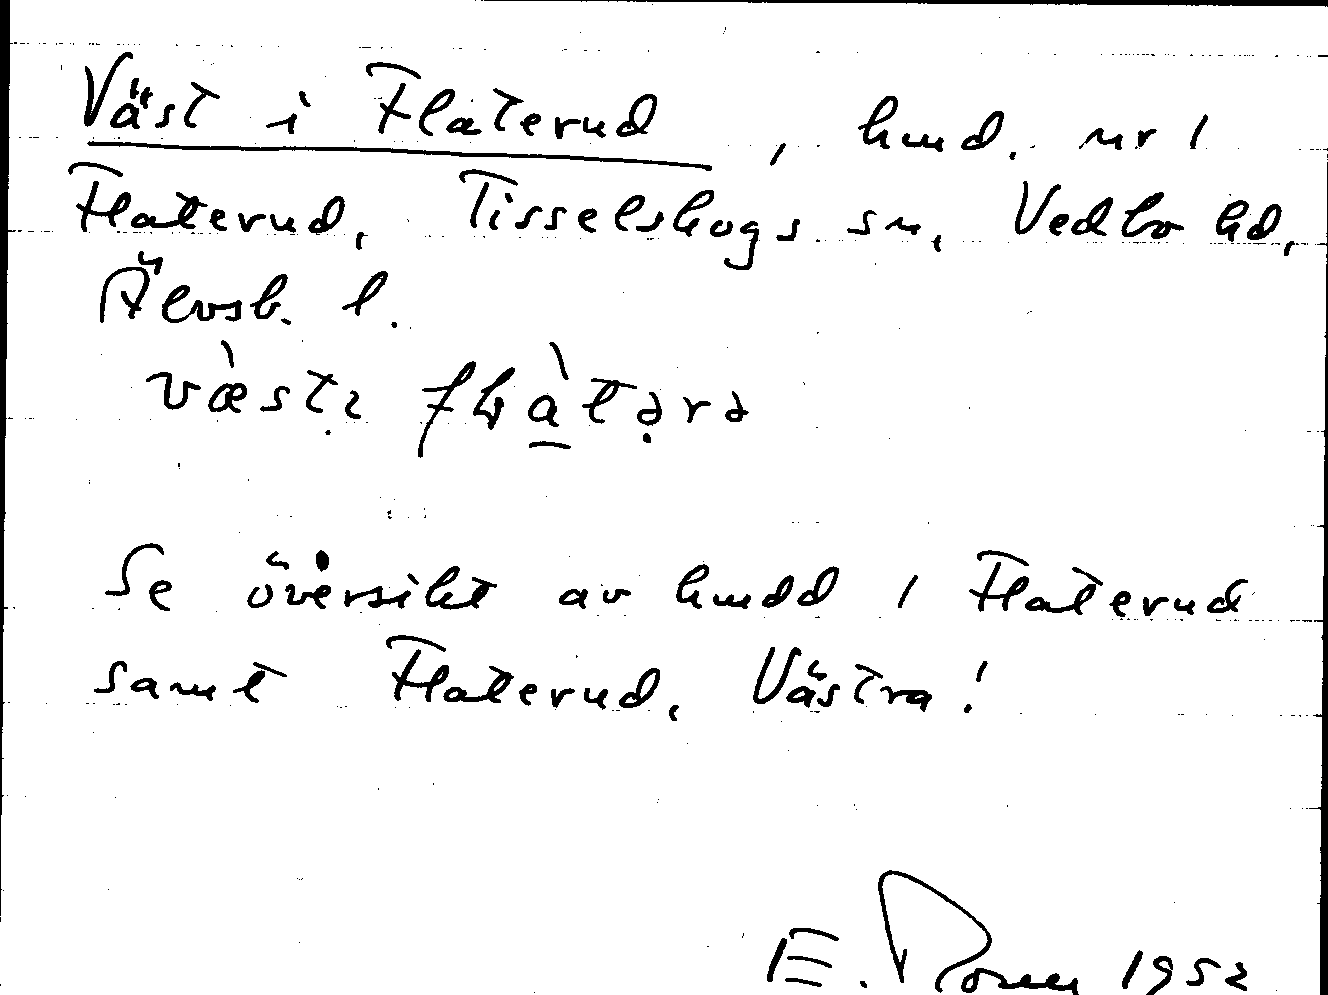 Väst i Flaterud, hmd. nr 1
Flaterud, Tisselskogs sn, Vedbo hd,
Älvsb. l.
Se översikt av hmdd 1 Flaterud
samt Flaterud, Västra!
E. 1952